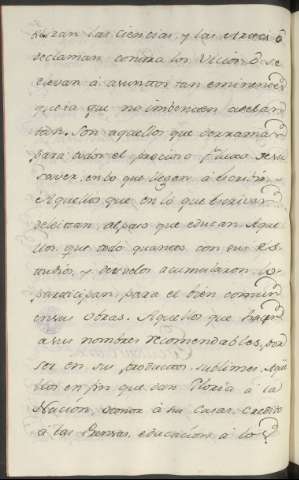 las Ciencias, y las Artes ó
declaman contra los Vicios, ó se
elevan á asuntos tan eminentes
que no
Son aquellos que derraman
para todos el precioso fruto de su
saver, en lo que llegan á escribir
Aquellos que en lo que escriven
deleitan, al paso que educan. Aque
llos que todo quanto con sus Es
tudios, y desvelos acumularon, lo
participan para el bien comun
en sus obras. Aquellos que hacen
a sus nombres recomendables, por
ser en su productos sublimes. Aqu
llos en fin que dan Gloria á la
Nacion, á su Casas, credito
á las Prensas, educacion á los